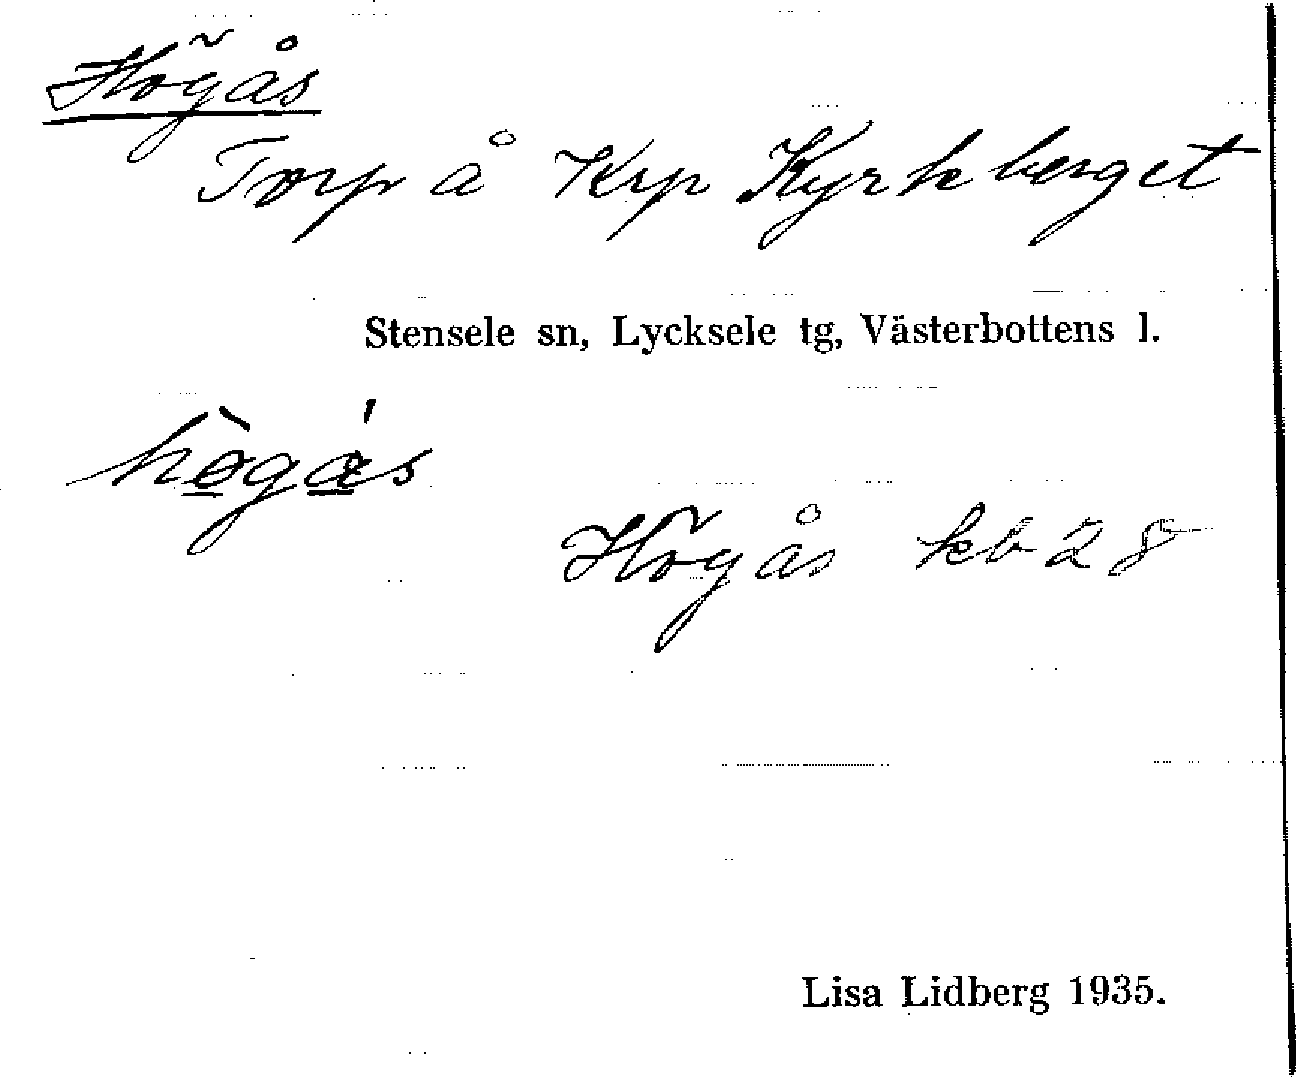 Högås
Torp å Krp Kyrkberget
Stensele sn, Lycksele tg, Västerbottens l.
hö̀gás
Högås kb 28
Lisa Lidberg 1935.